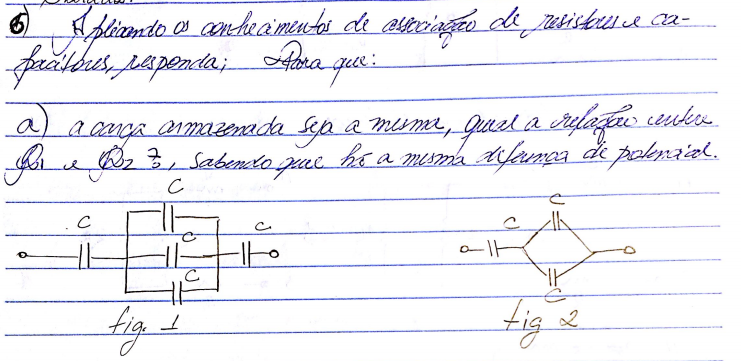 6) Aplicando os conhecimentos de associação de resistores e ca-
pacitores, responda; Para que:
a) a carga armazenada seja a mesma, qual a relação entre
Q1 e Q2 ?, sabendo que há a mesma diferença de potencial.
C
C C C
C
fig. 1
C
C
C
fig 2